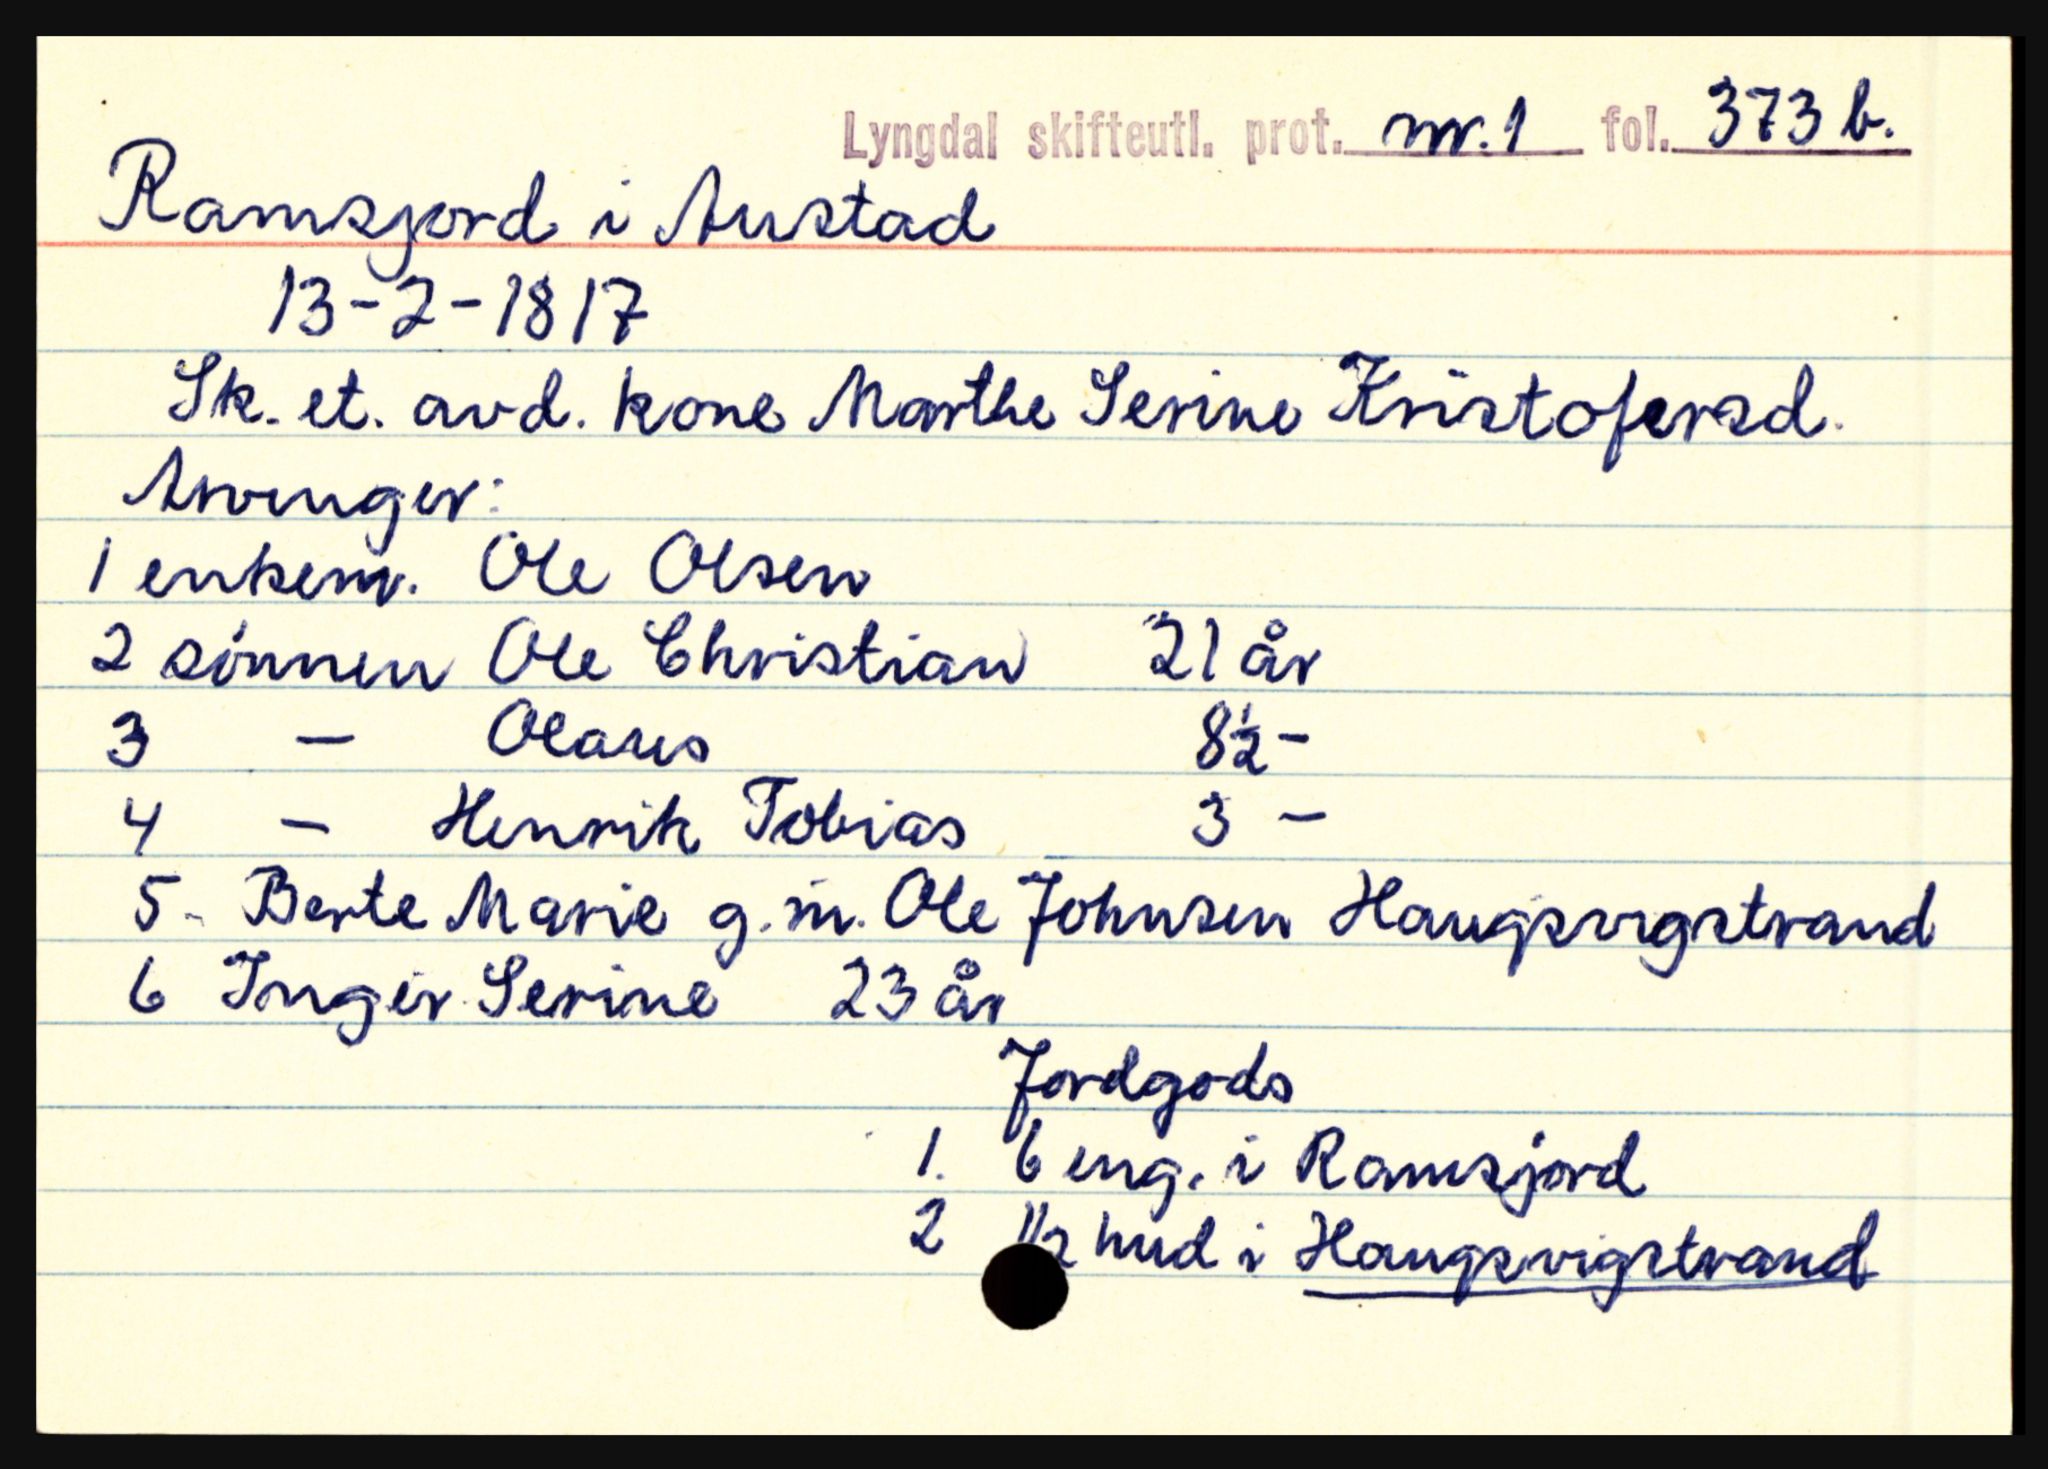 Lyngdal skifteutl. prot. nr. 1 fol. 373 b.
Ramsjord i Austad
13-2-1817
Sk. et. avd. kone Marthe Serine Kristofersd.
Arvinger:
1 enkem. Ole Olsen
2 sønnen Ole Christian 21 år
3 — Olaus 8½ -
4 — Henrik Tobias 3 -
5 - Berte Marie g.m. Ole Johnsen Haugsvigstrand
6 Inger Serine 23 år
Jordgods
1. 6 eng. i Ramsjord
2 1/2 hud i Haugsvigstrand